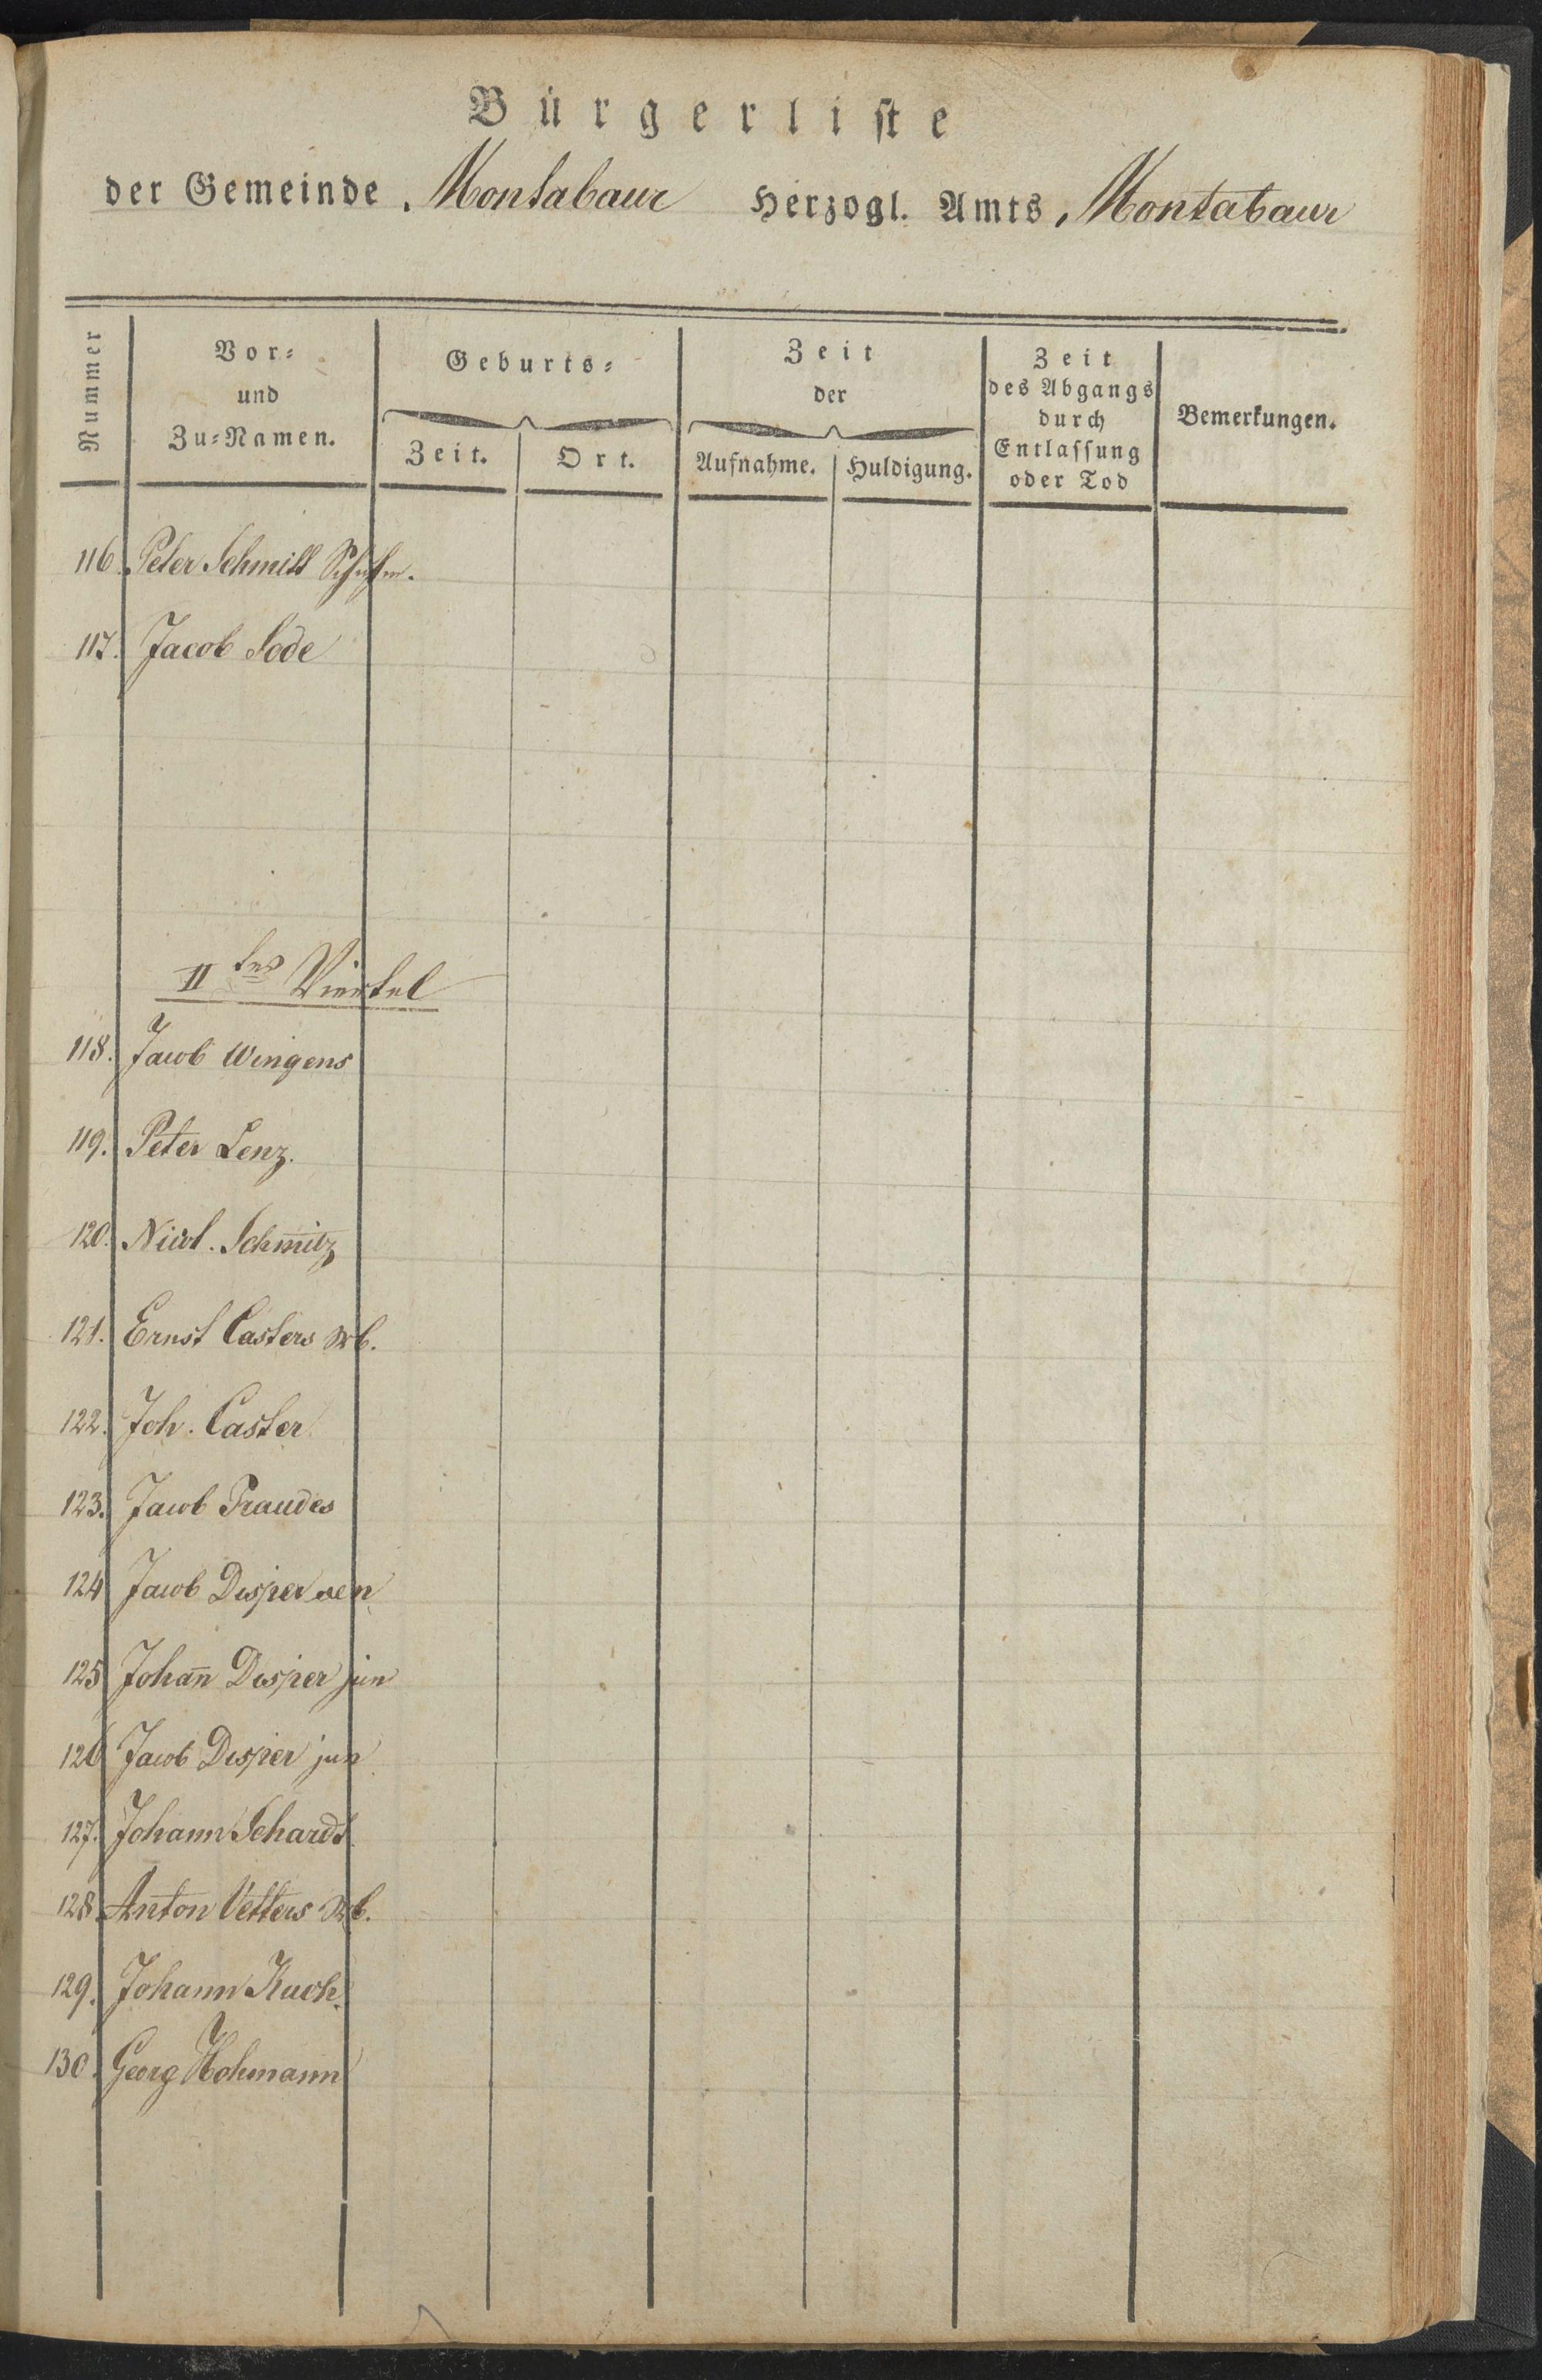 Bürgerliste
der Gemeinde Montabaur Herzogl. Amts Montabaur
Nummer
Vor= und Zu=Namen.
Geburts=
Zeit. Ort.
Zeit der
Aufnahme. Huldigung.
Zeit des Abgangs durch Entlassung oder Tod
Bemerkungen.
116. Peter Schmitt
117. Jacob Sode
II tes Viertel
118. Jacob Wingens
119. Peter Lenz.
120. Nicol. Schmitz
121. Ernst Casters Wb.
122. Joh. Caster
123. Jacob Fraudes
124 Jacob Disper sen
125 Johan̄ Disper jun
126 Jacob Disper jun
127. Johann Schardt
128 Anton Vetters Wb.
129. Johann Kuch.
130. Georg Hohmann